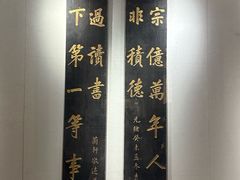 宗億萬年人
非積德
光緒癸未孟冬
過讀書
下第一等事
蘭軒敬述